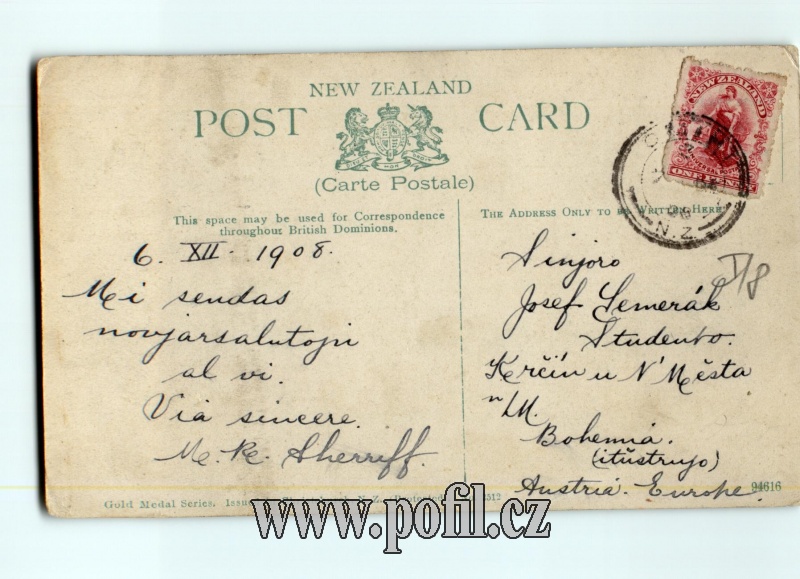 NEW ZEALAND
POST CARD
(Carte Postale)
This space may be used for Correspondence
throughout British Dominions.
THE ADDRESS ONLY TO BE WRITTEN HERE
NEW ZEALAND
ONE PENNY
N.Z.
6. XII. 1908.
Mi sendas
novjarsalutojn
al vi.
Via sincere.
M. Re. Sherriff.
Sinjoro
Josef Semerák
Studento.
Krčín u N' Města
n/M.
Bohemia.
Austria. Europe.
94616
Gold Medal Series.
www.pofil.cz